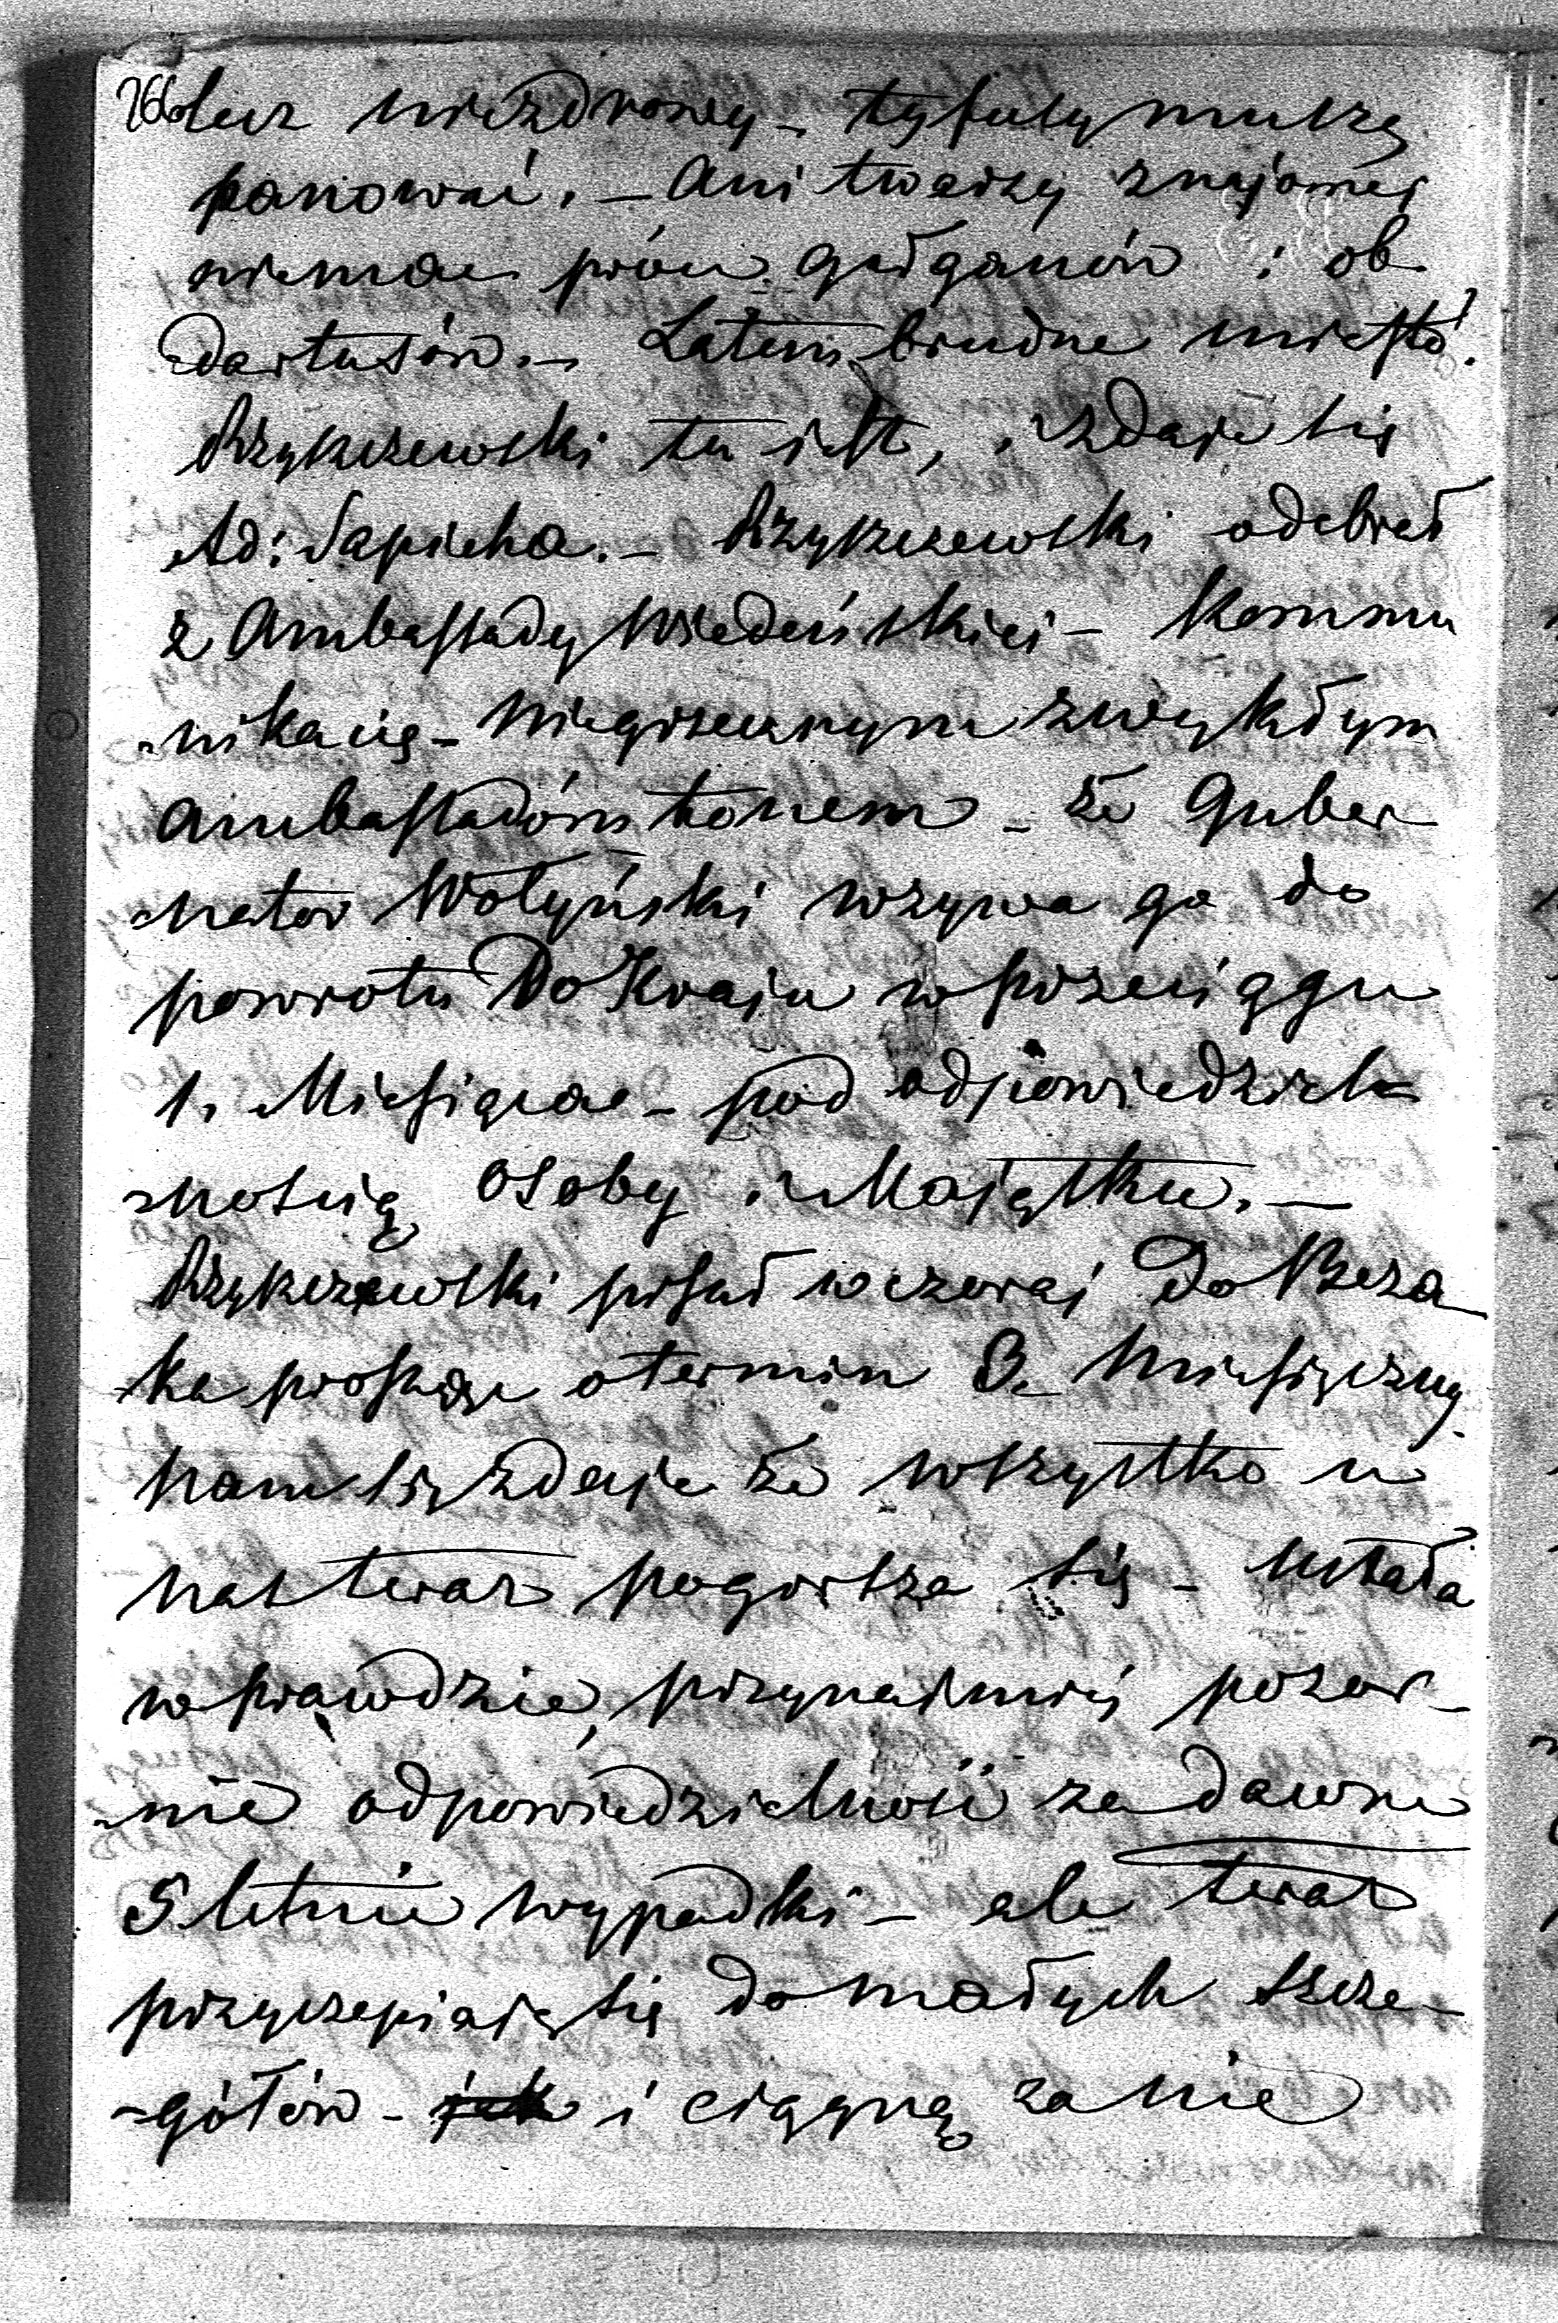 266 lecz niezdrowy – tyfusy muszą
panować. – Ani twarzy znajomej
niema prócz gałganów i ob
dartusów. – Latem brudne miasto.
Rzyszczewski tu jest, i zdaje się
Ad: Sapieha. – Rzyszczewski odebrał
z Ambassady Wiedeńskiej – kommu
nikacią – niegrzecznym zwykłym
ambassadóm tonem – że Guber
nator Wołyński wzywa go do
powrotu do Kraju w przeciągu
1. Miesiąca – pod odpowiedziel
nością osoby i Majątku. –
Rzyszczewski pisał wczoraj do Beza
ka prosząc o termin 3. Miesięczny.
Nam się zdaje że wszystko u
nas teraz pogorsza się – Ustała
w prawdzie, przynajmniej pozor-
nie odpowiedzialność za dawne
5. letnie wypadki – ale teraz
przyczepiają się do małych szcze-
gółów – jak i ciągną za nie